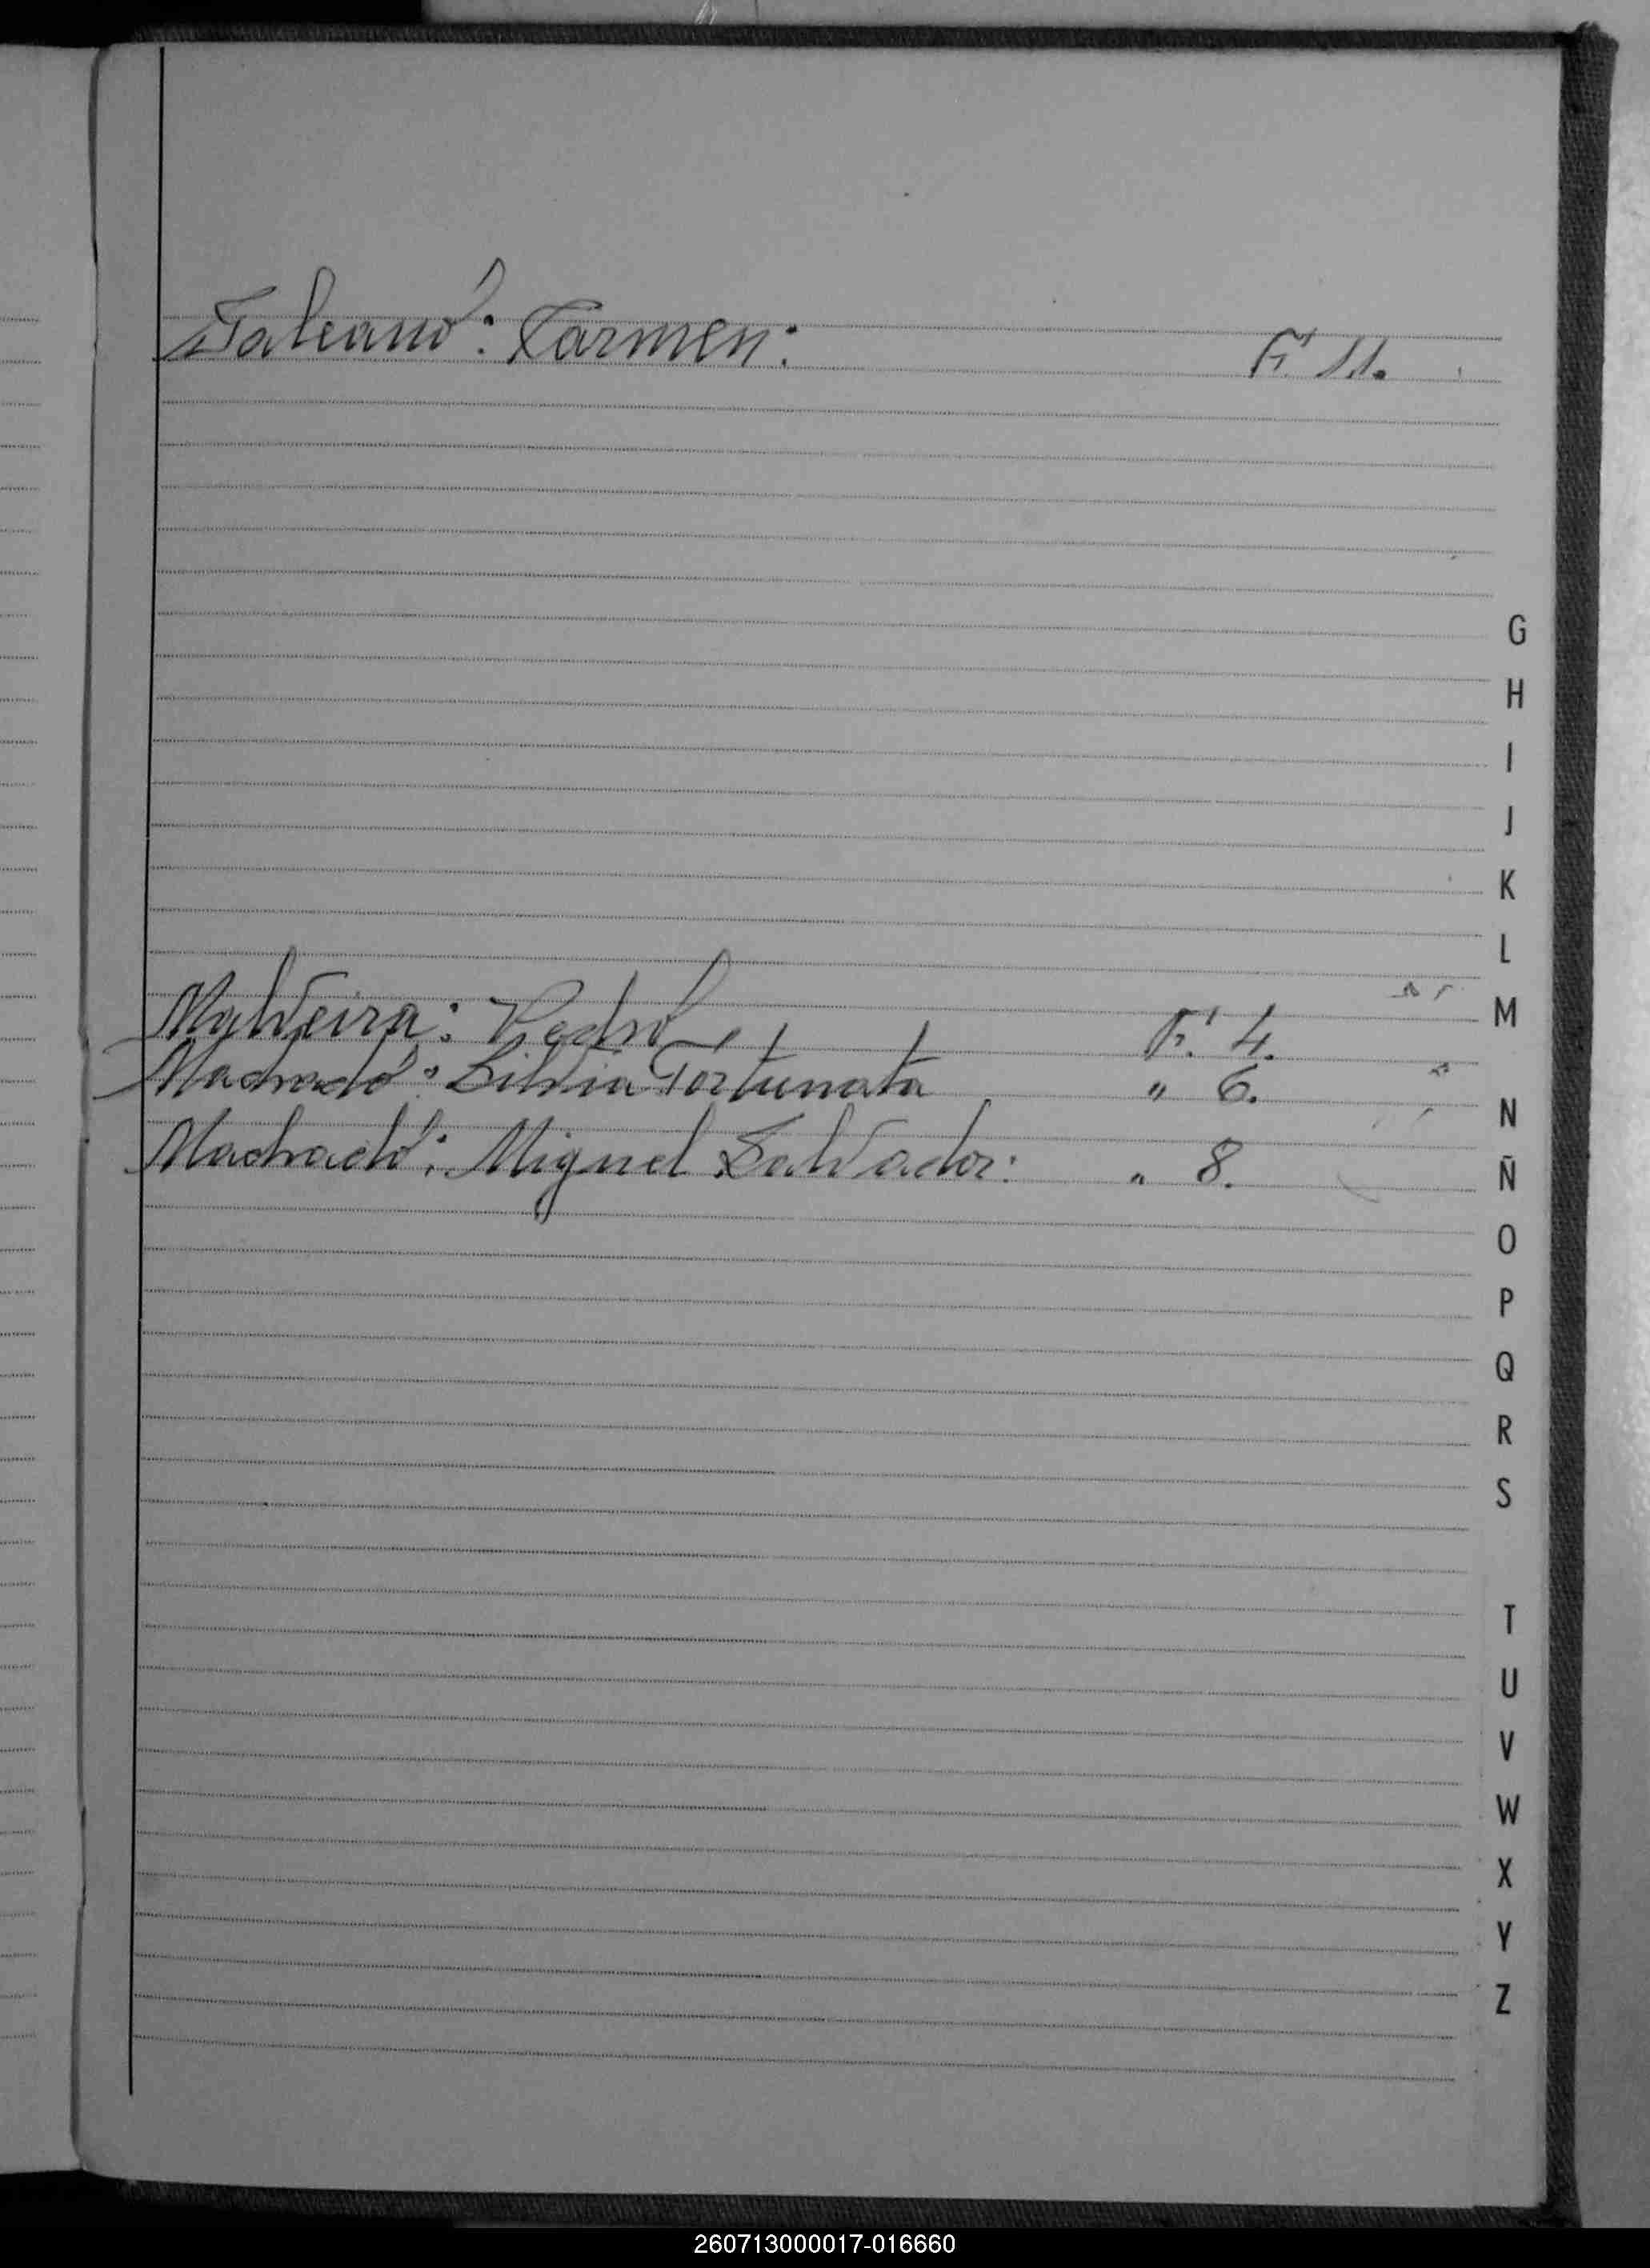 Galeano: Carmen: F. 11.
G
H
I
J
K
L
M
Malveira: Pedro F. 4.
Machado: Silvia Fortunata " 6.
N
Machado: Miguel Salvador: " 8.
Ñ
O
P
Q
R
S
T
U
V
W
X
Y
Z
260713000017-016660